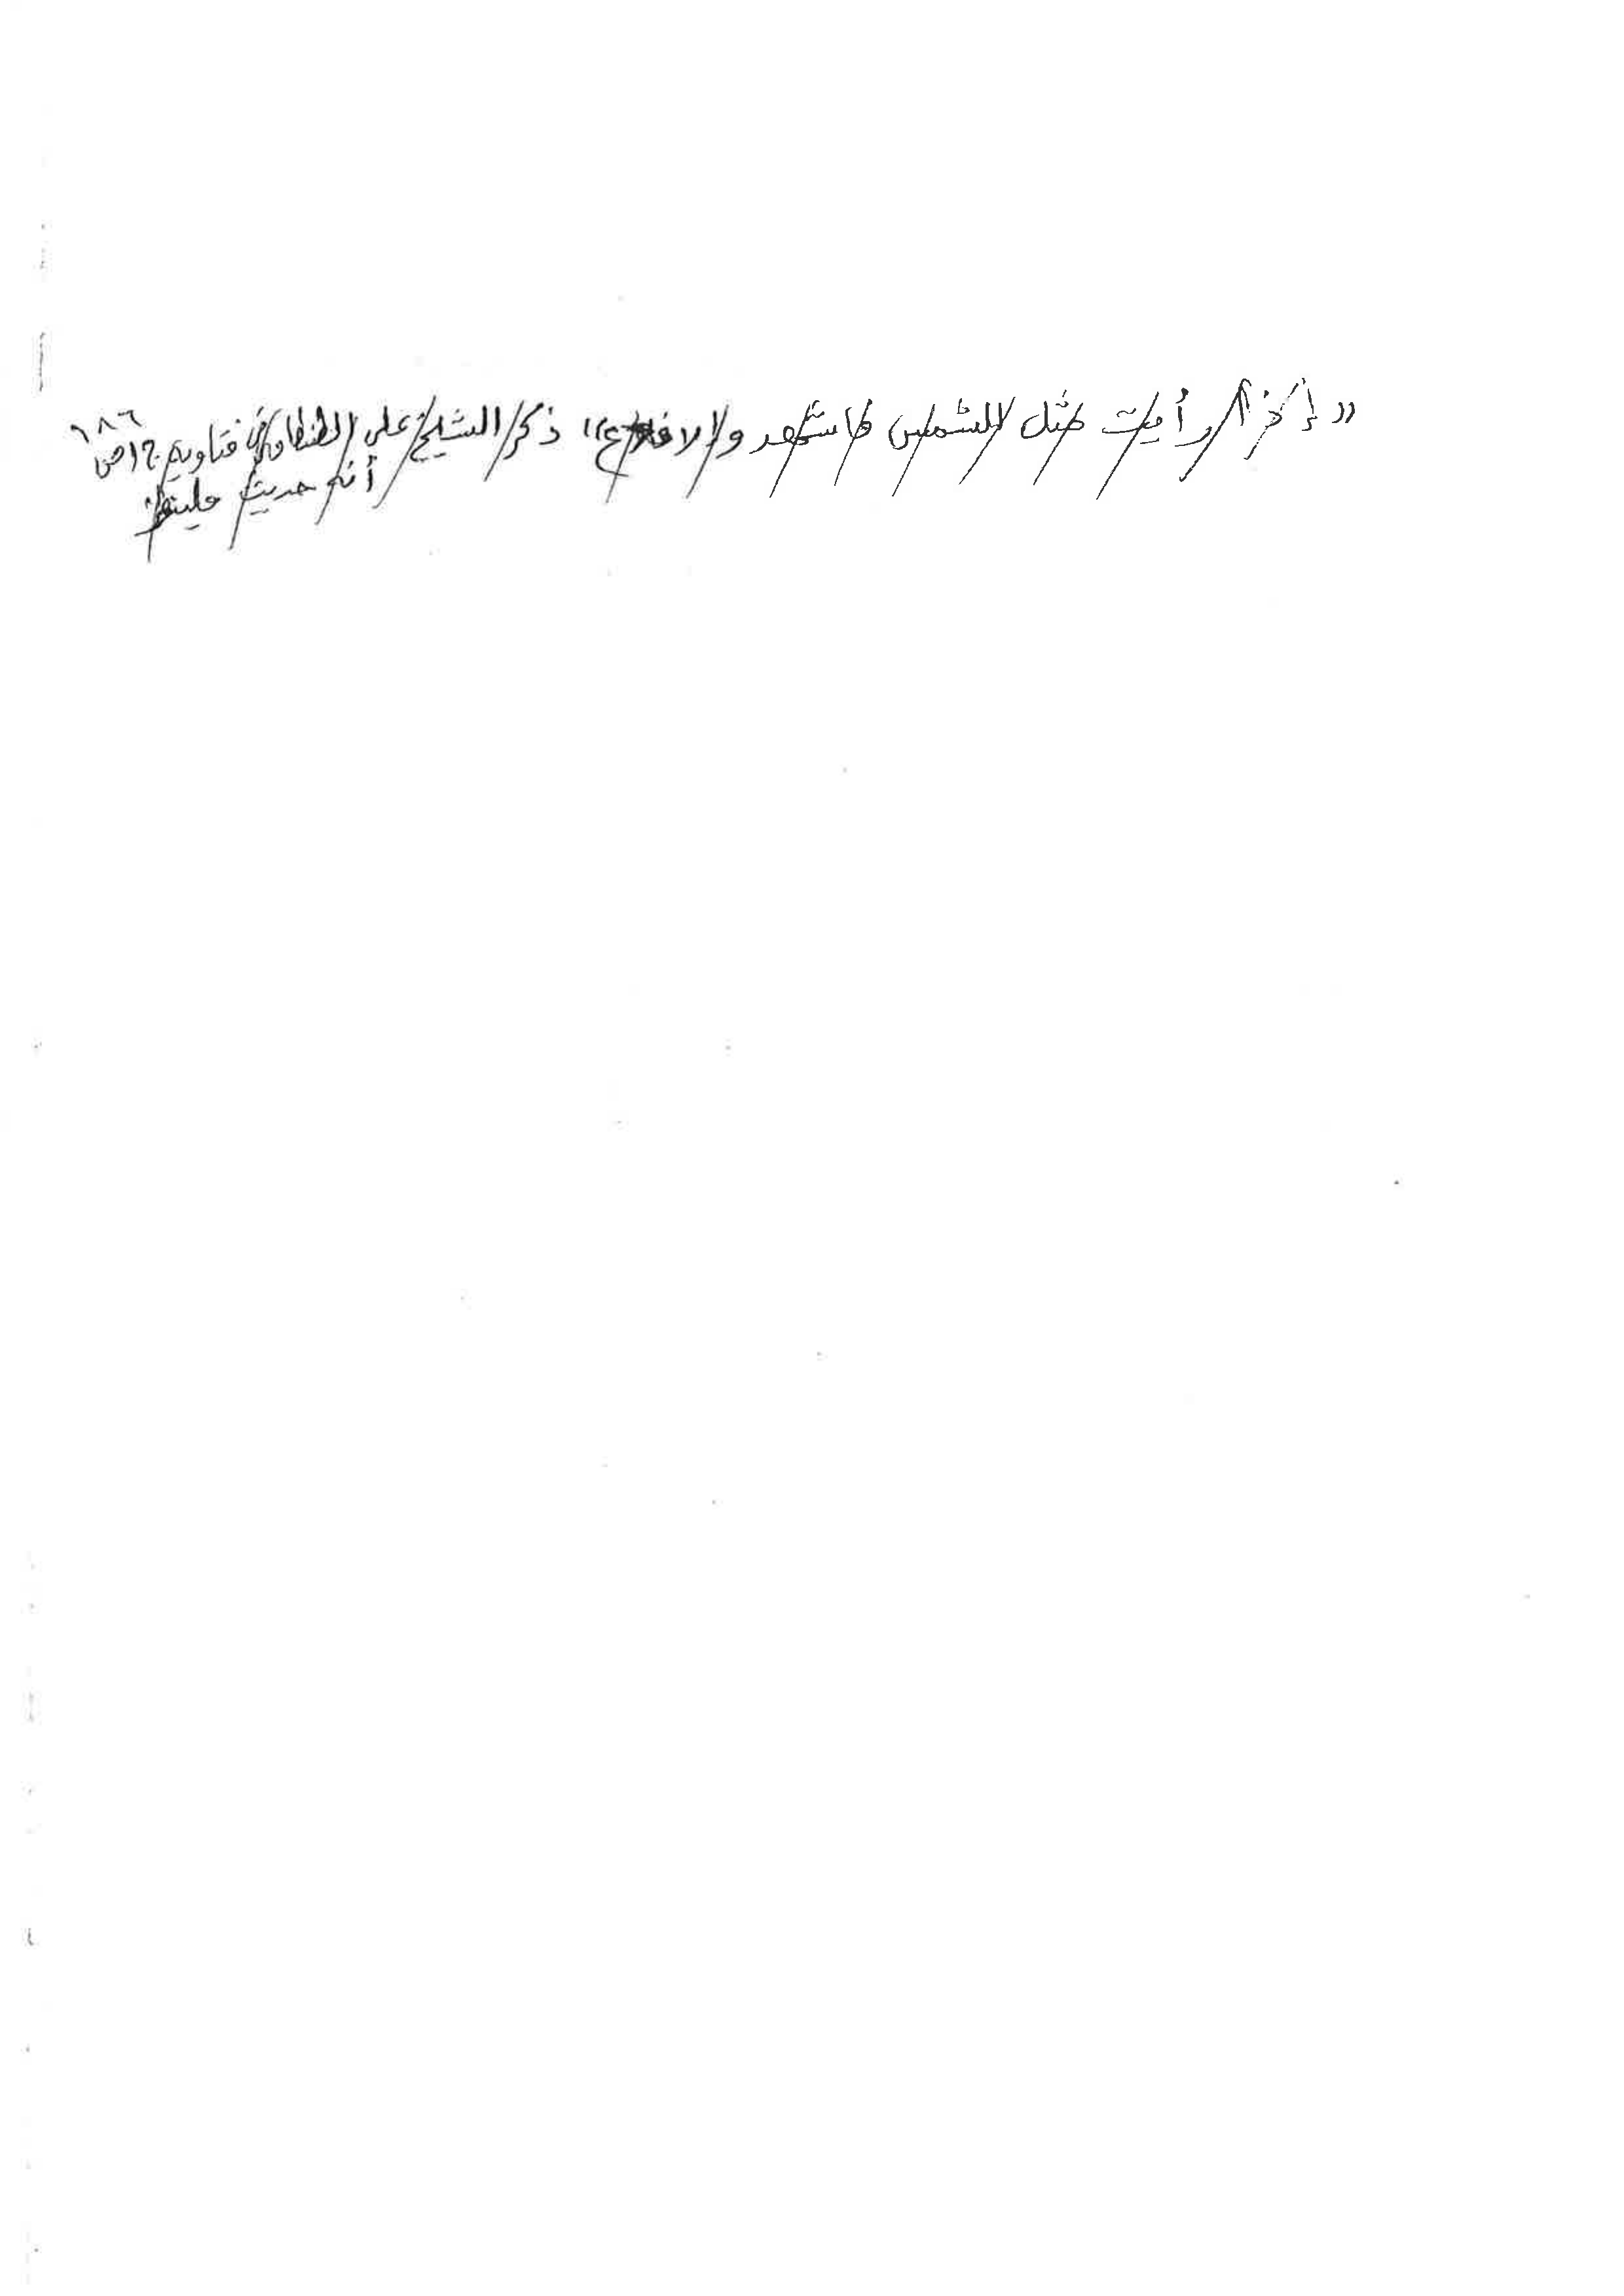 «إذا رأيت مثل الشمس فاشهد وإلا فدع» ذكر الشيخ علي الطنطاوي في فتاويه ج١ ص١٨٦
أنه حديث فلينظر